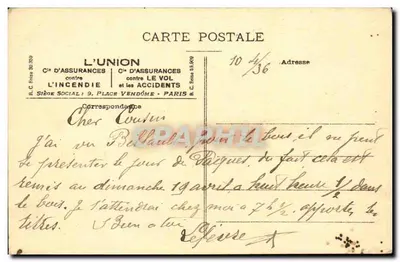 CARTE POSTALE
L'UNION
Cie D'ASSURANCES contre L'INCENDIE
Cie D'ASSURANCES contre LE VOL et les ACCIDENTS
SIÈGE SOCIAL : 9, PLACE VENDÔME - PARIS
Correspondance
Adresse
10 4/36
Cher Cousin
J'ai vu pour le bois, il ne peut
se présenter le jour de Pâques, du fait cela est
remis au dimanche 19 avril a huit heure 1/2 dans
le bois. Je t'attendrai chez moi a 7h 1/2. apporter les
titres. Bien a toi
Lefèvre